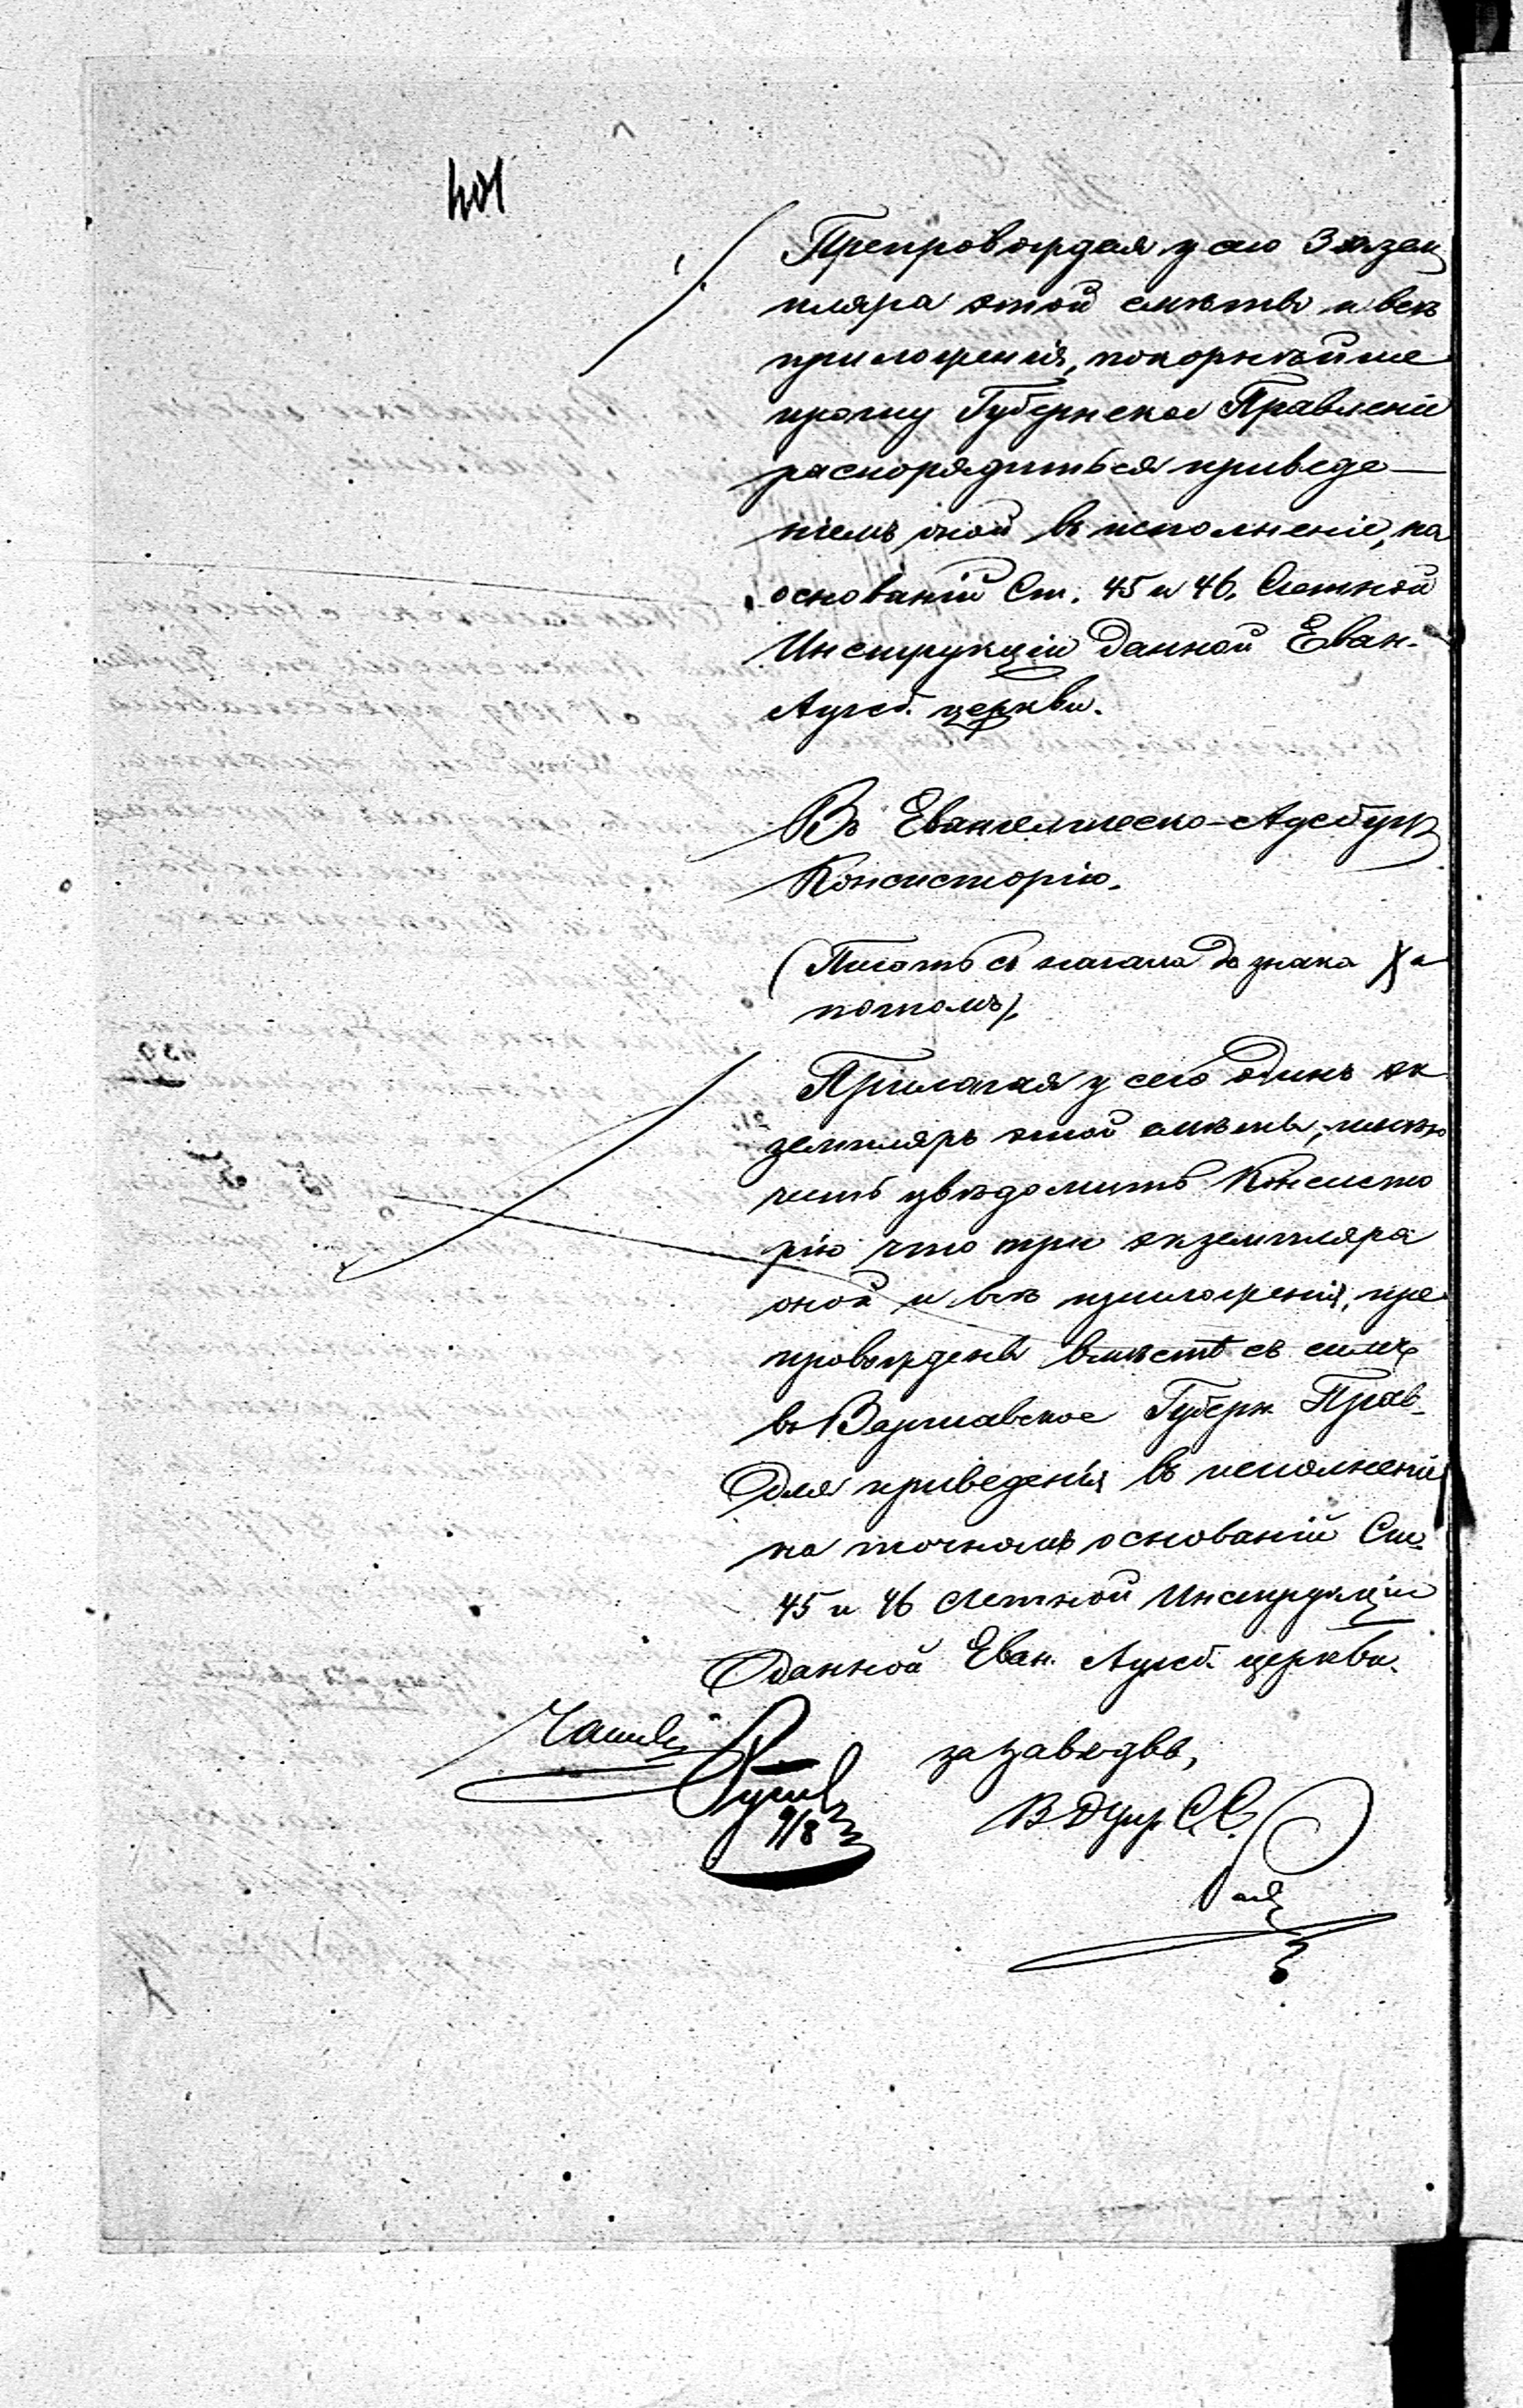 401
Препровождая у сего 3 экзем
пляра этой смѣты и всѣ
приложенія, покорнѣйше
прошу Губернское Правленіе
распорядиться приведе-
ніемъ оной въ исполненіе, на
основаніи Ст. 45 и 46. Счетной
Инструкціи данной Еван-
Аугсб. церкви.
Въ Евангелическо-Аугсбург
Консисторію.
(Писать съ начала до знака X а
потомъ).
Прилагая у сего одинъ эк
земпляръ этой смѣты, имѣю
честь увѣдомить Консисто
рію что три экземпляра
оной и всѣ приложенія, пре
провождены вмѣстѣ съ симъ
въ Варшавское Губерн. Прав.
для приведенія въ исполненіе
на точномъ основаніи Ст.
45 и 46 Счетной Инструкціи
данной Еван. Аугсб. церкви.
за Завѣдыв,
9/8